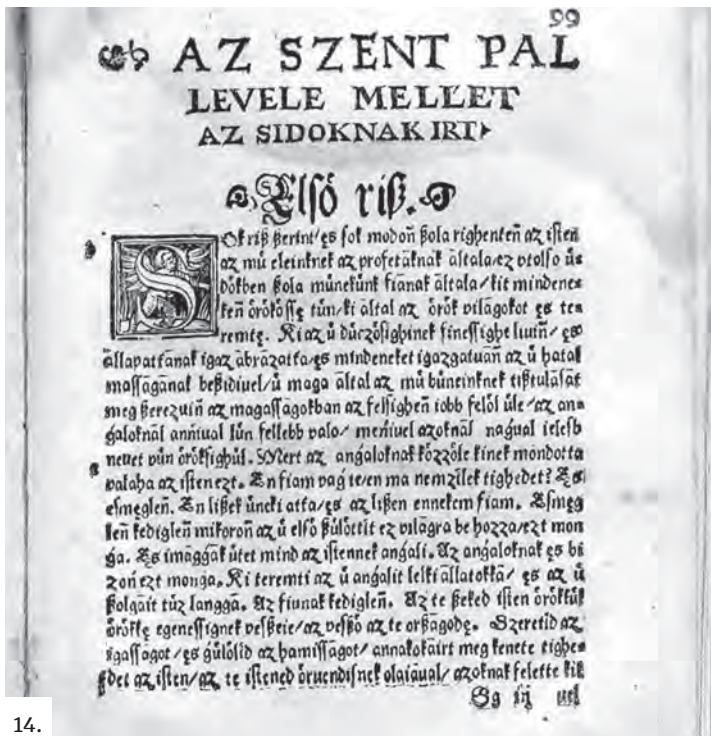 99
AZ SZENT PAL
LEVELE MELLET
AZ SIDOKNAK IRT
Elſó riß.
SOk riß ßerint/ ęs ſok modoñ ßola righenteñ az iſten
az mú eleinknek az profetáknak általa/ ez vtolſo ú⸗
dókben ßola múnekúnk fianak általa/ kit mindene⸗
keñ órókóſſę tún/ ki által az órók világokot ęs te⸗
remtę. Ki az ú dúczóſighinek fineſſighe liuiñ/ ęs
állapattſanak igaz ábrázatta/ ęs mindeneket igazgatuáñ az ú hatal
maſſágának beßidiuel/ ú maga által az mú búneinknek tißtulását
meg ßerezuiñ az magaſſágokban az felſighen iobb felól úle/ az an⸗
galoknál anniual lún fellebb valo/ meñiuel azoknál nagual ieleſb
neuet vún órókſighúl. Mert az angaloknak kózzóle kinek mondotta
valaha az iſten ezt. Ęn fiam vag te/ en ma nemzílek tighedet? Ęs
eſmęgleñ. Ęn lißek úneki atta/ ęs az lißen ennekem fiam. Eſmęg
leñ kedigleñ mikoroñ az ú elſó ßúlóttit ez világra be hozza/ ezt mon
ga. Ęs imággák útet mind az iſtennek angáli. Az angaloknak ęs bi
zoñ ezt monga. Ki teremti az ú angalit lelki állatokká/ ęs az ú
ßolgáit túz langgá. Az fiunak kedigleñ. Az te ßeked iſten órókkúl
órókkę egeneſſignek veßßeie/ az veßßó az te orßágodę. Szeretíd az
igaſſágot/ ęs gúlólíd az hamiſſágot/ annakokáirt meg kenete tighe⸗
det az iſten/ az te iſtened óruendiſnek olaiáual/ azoknak felette kik
Gg iij uel
14.